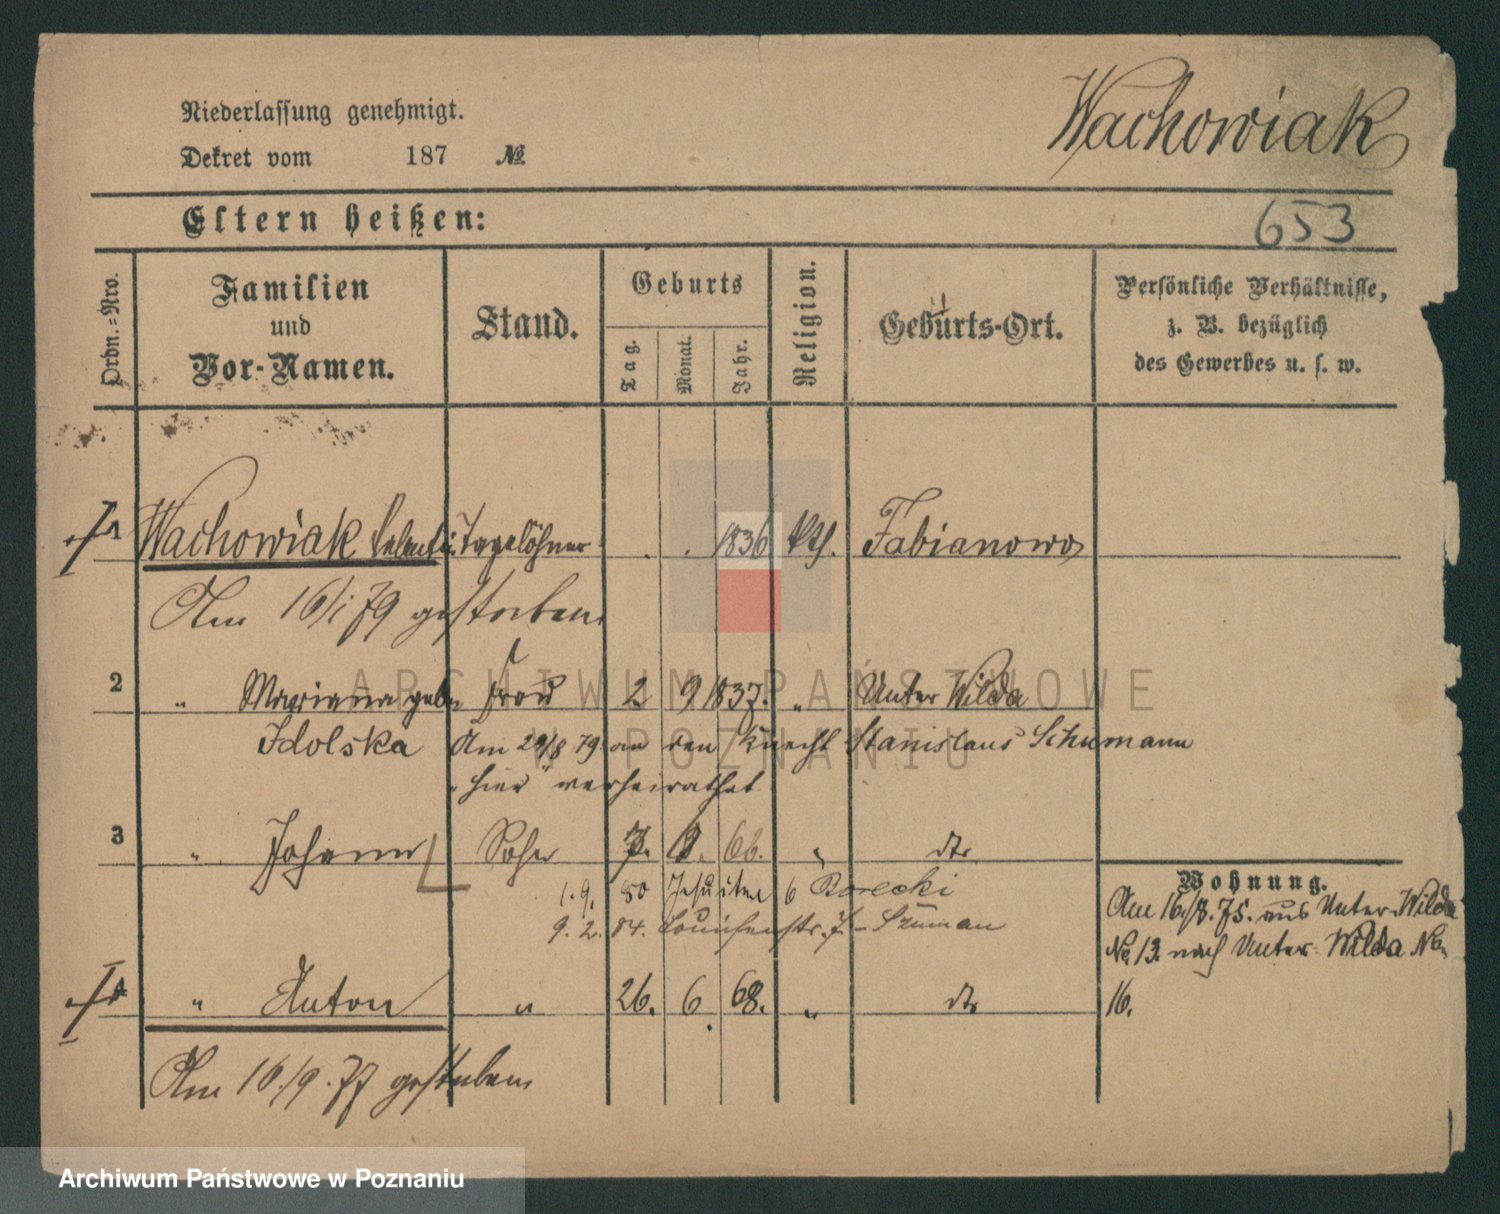 Niederlassung genehmigt.
Dekret vom 187 №
Wachowiak
Eltern heißen:
653
Ordn.=Nro.
Familien
und
Vor-Namen.
Stand.
Geburts
Tag.
Monat.
Jahr.
Religion.
Geburts-Ort.
Persönliche Verhältnisse,
z. B. bezüglich
des Gewerbes u. s. w.
1 Wachowiak Tagelöhner 1836 kth. Fabianowo
Am 16/1 79 gestorben
2 " Marianna geb. Frau 2 9 1837. " Unter Wilda
Idolska Am 29/8 79 an den Knecht Stanislaus Schumann
hier verheirathet
3 " Johann Sohn 7. 8. 66. " dto
1. 9. 80 Jesuiten 6 Borecki
9. 2. 84. Louisenstr. 7 - Szuman
Wohnung.
Am 16/8. 75. aus Unter-Wilda
No. 13. nach Unter-Wilda No.
16.
4 " Anton " 26. 6. 68. " dto
Am 16/9. 77 gestorben
ARCHIWUM PAŃSTWOWE
W POZNANIU
Archiwum Państwowe w Poznaniu